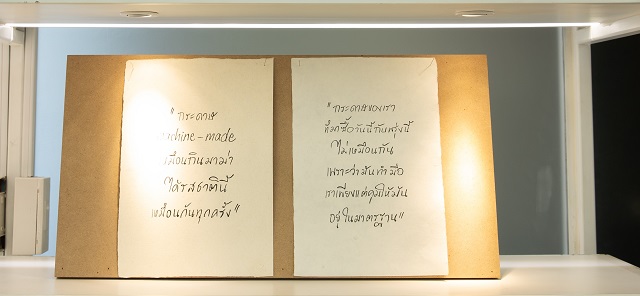 "กระดาษ
machine-made
เหมือนกินมาม่า
ได้รสชาตินี้
เหมือนกันทุกครั้ง"
"กระดาษของเรา
ที่มาซื้อวันนี้กับพรุ่งนี้
ไม่เหมือนกัน
เพราะว่ามันทำมือ
เราเพียงแต่คุมให้มัน
อยู่ในมาตรฐาน"